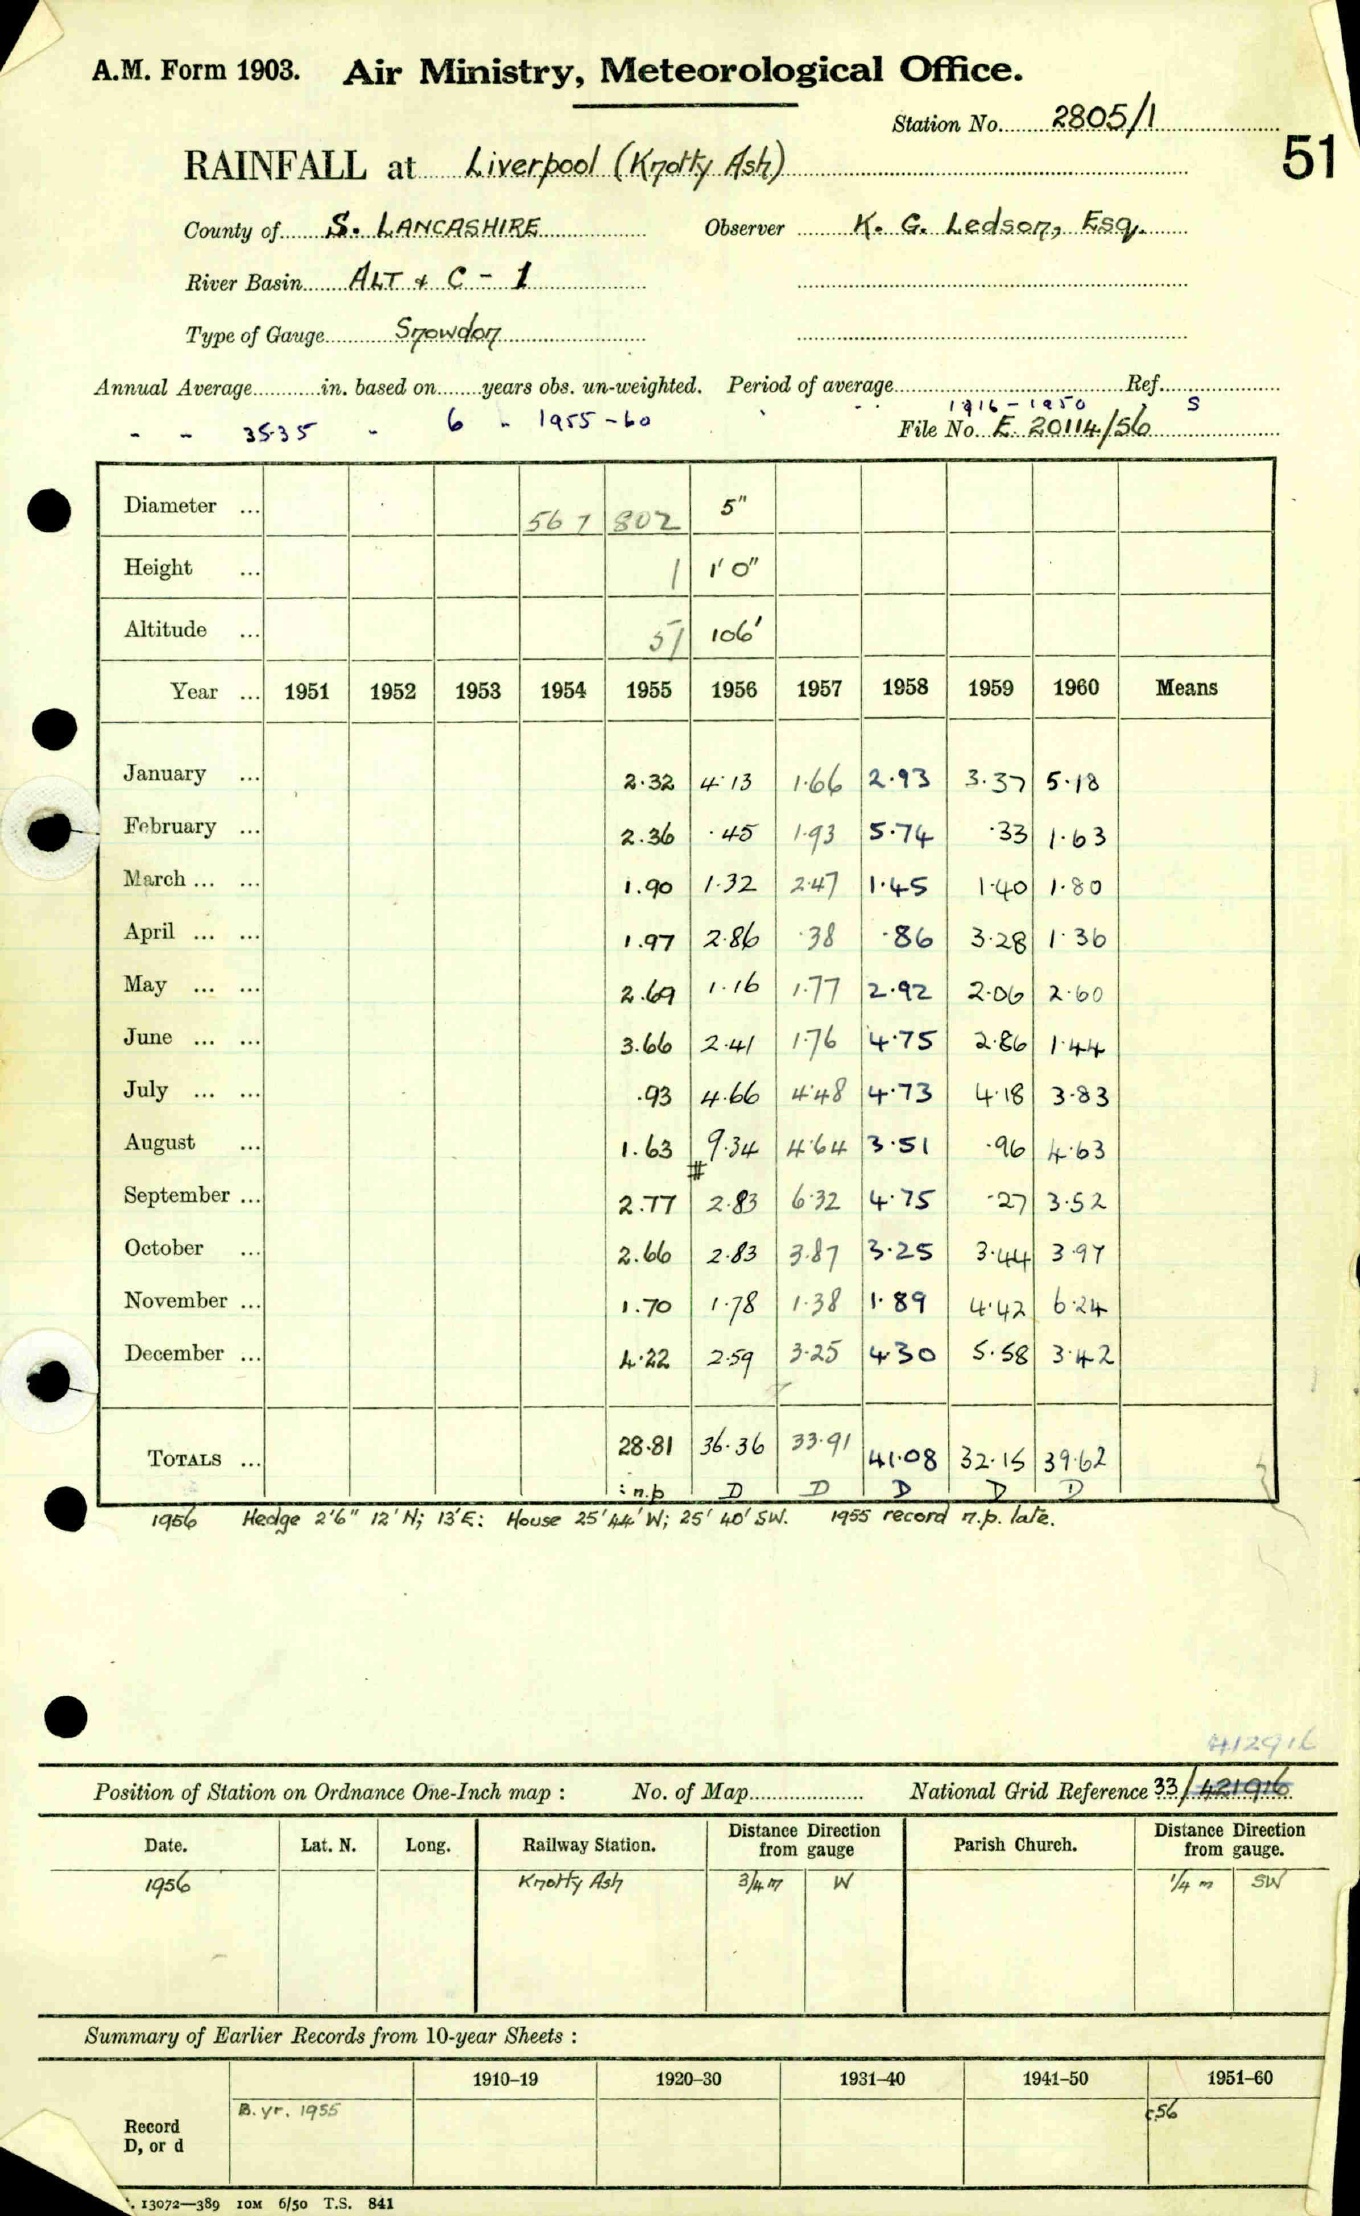 A.M. Form 1903. Air Ministry, Meteorological Office.
Station No. 2805/1
51
RAINFALL at Liverpool (Knotty Ash)
County of S. LANCASHIRE Observer K. G. Ledson, Esq.
River Basin ALT & C - 1
Type of Gauge Snowdon
Annual Average in. based on years obs. un-weighted. Period of average Ref.
1916-1950 S
- - 35.35 - 6 - 1955-60 File No. E 20114/56
Diameter ... 567 802 5"
Height ... 1 1' 0"
Altitude ... 51 106'
Year ... 1951 1952 1953 1954 1955 1956 1957 1958 1959 1960 Means
January ... 2.32 4.13 1.66 2.93 3.37 5.18
February ... 2.36 .45 1.93 5.74 .33 1.63
March ... ... 1.90 1.32 2.47 1.45 1.40 1.80
April ... ... 1.97 2.86 .38 .86 3.28 1.36
May ... ... 2.69 1.16 1.77 2.92 2.06 2.60
June ... ... 3.66 2.41 1.76 4.75 2.86 1.44
July ... ... .93 4.66 4.48 4.73 4.18 3.83
August ... 1.63 9.34 4.64 3.51 .96 4.63
#
September ... 2.77 2.83 6.32 4.75 .27 3.52
October ... 2.66 2.83 3.87 3.25 3.44 3.97
November ... 1.70 1.78 1.38 1.89 4.42 6.24
December ... 4.22 2.59 3.25 4.30 5.58 3.42
TOTALS ... 28.81 36.36 33.91 41.08 32.15 39.62
: n.p D D D D D
1956 Hedge 2'6" 12'N; 13'E: House 25' 44'W; 25' 40'SW. 1955 record n.p. late.
412916
Position of Station on Ordnance One-Inch map : No. of Map National Grid Reference 33/421916
Date. Lat. N. Long. Railway Station. Distance from Direction gauge Parish Church. Distance from Direction gauge.
1956 Knotty Ash 3/4 m W 1/4 m SW
Summary of Earlier Records from 10-year Sheets :
1910–19 1920–30 1931–40 1941–50 1951–60
Record D, or d B. yr. 1955 c56
13072—389 10M 6/50 T.S. 841